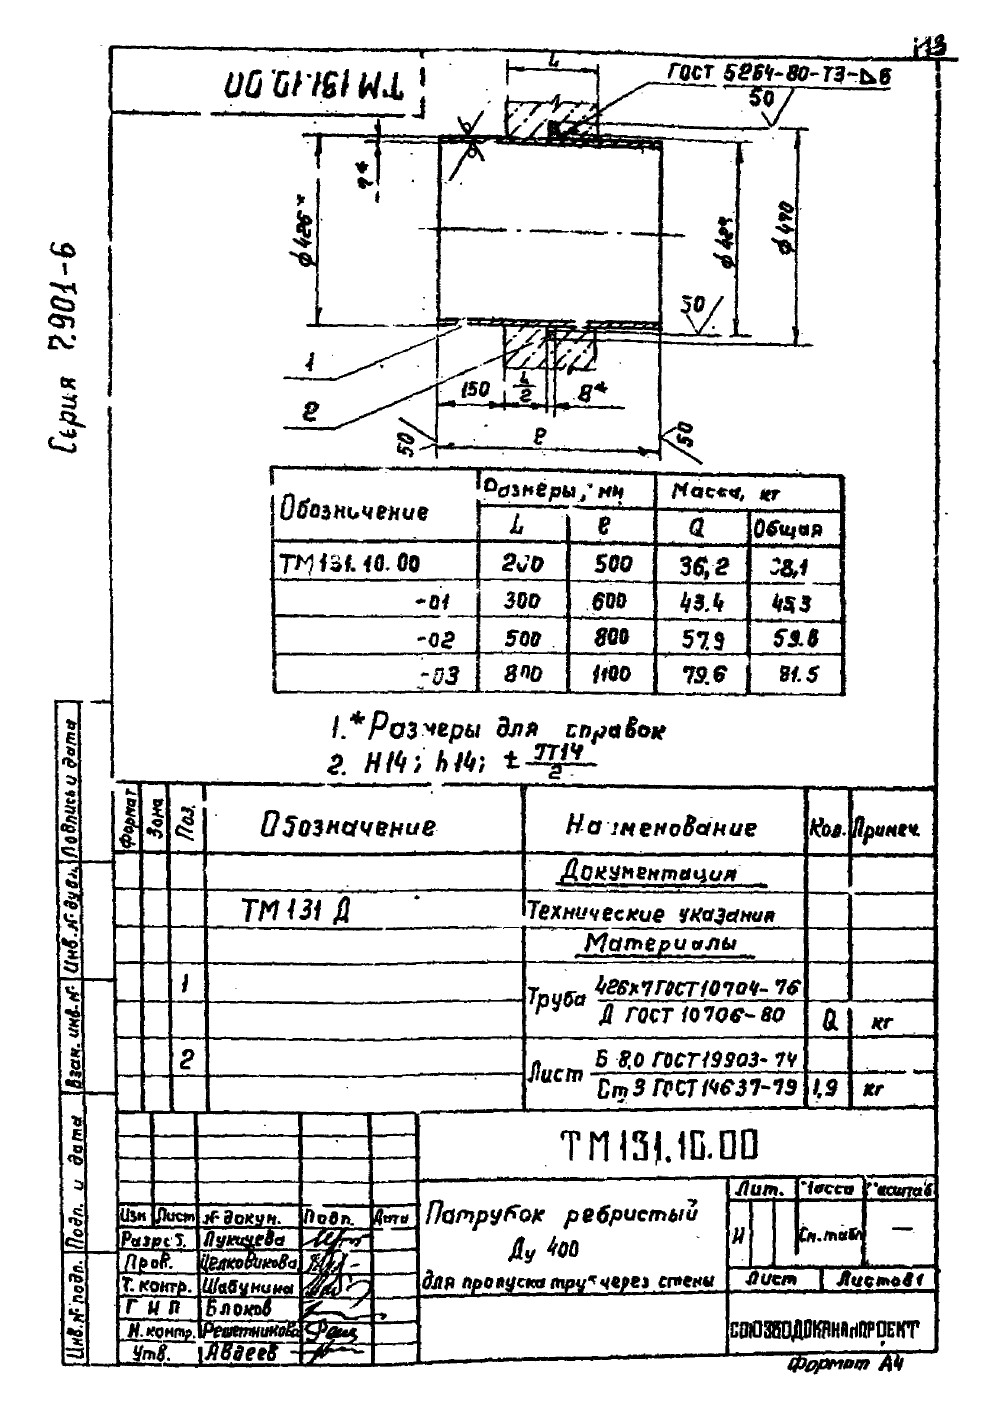 113
ТМ 131.10.00
L
ГОСТ 5264-80-Т3-⊿6
50
7*
ϕ426*
ϕ429
ϕ470
Серия 7.901-6
50
1
2
150
L/2
8*
ℓ
50
50
Обозначение Размеры, мм Масса, кг
L ℓ Q Общая
ТМ 131.10.00 200 500 36,2 38,1
-01 300 600 43.4 45,3
-02 500 800 57,9 59.8
-03 800 1100 79.6 81.5
1.*Размеры для справок
2. H14; h14; ± IT14/2
Формат Зона Поз. Обозначение Наименование Кол. Примеч.
Документация
ТМ 131 Д Технические указания
Материалы
1 Труба 426х7 ГОСТ 10704-76
Д ГОСТ 10706-80 Q кг
2 Лист Б 8,0 ГОСТ 19903-74
Ст 3 ГОСТ 14637-79 1,9 кг
Подпись и дата
Инв. № дубл.
Взам. инв. №
Подп. и дата
Инв. № подл.
ТМ 131.10.00
Изм Лист № докум. Подп. Дата
Разраб. Лукичева
Пров. Целковикова
Т. контр. Шабунина
ГИП Блохов
Н. контр. Решетникова
Утв. Авдеев
Патрубок ребристый
Ду 400
для пропуска труб через стены
Лит. Масса Масштаб
И См. табл —
Лист Листов 1
СОЮЗВОДОКАНАЛПРОЕКТ
Формат А4